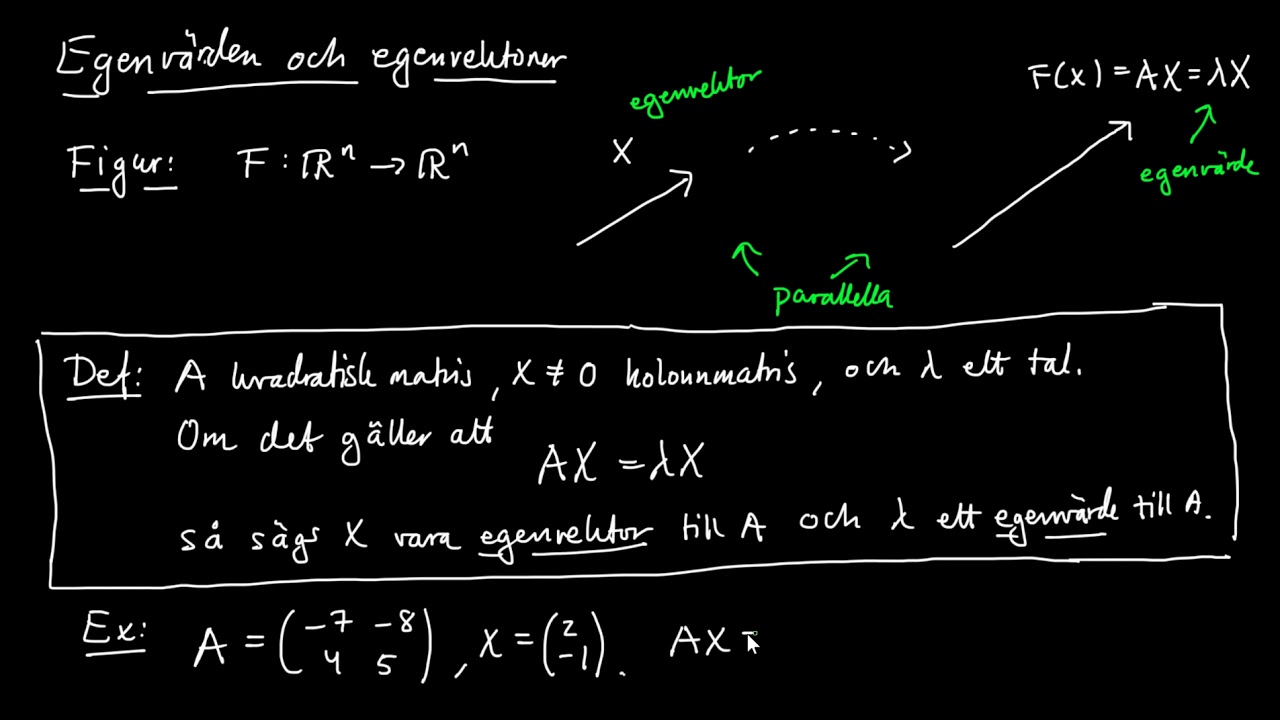 Egenvärden och egenvektorer
egenvektor
F(x) = AX = λX
Figur: F : ℝⁿ → ℝⁿ
X
egenvärde
parallella
Def: A kvadratisk matris, X ≠ 0 kolonnmatris, och λ ett tal.
Om det gäller att
AX = λX
så sägs X vara egenvektor till A och λ ett egenvärde till A.
Ex: A = (-7 -8
4 5), X = (2
-1). AX =